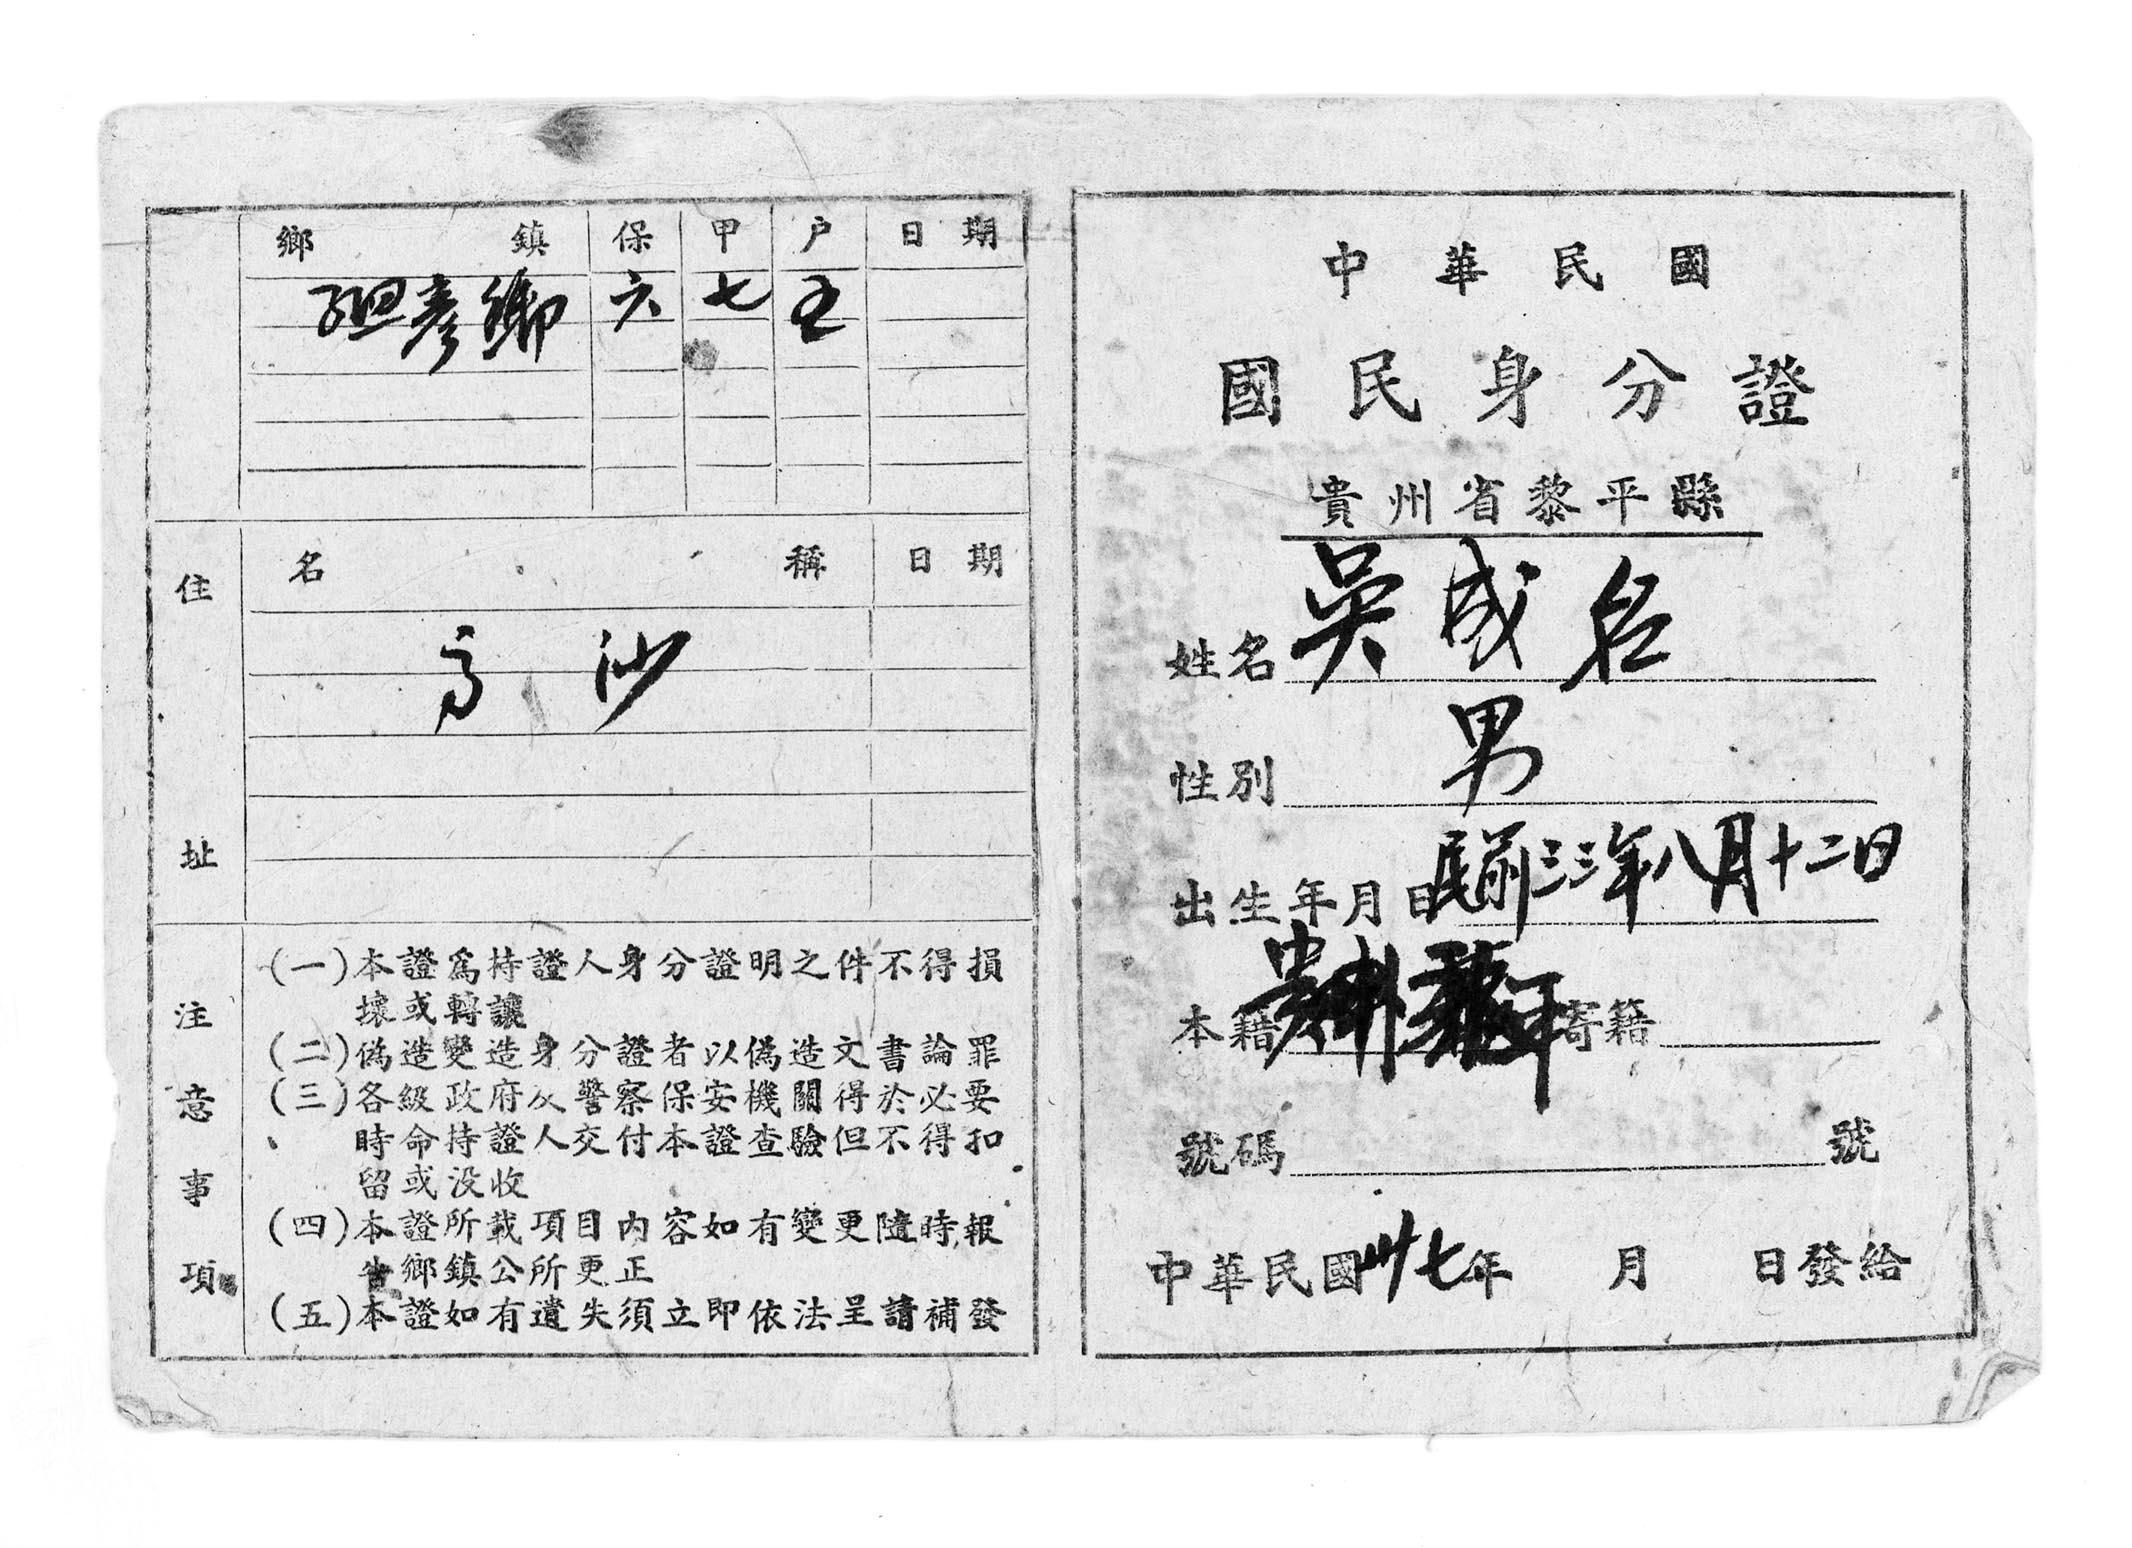 鄉鎮 保 甲 户 日期
彥鄉 六 七 五
住址
名稱 日期
高沙
注意事項
(一)本證爲持證人身分證明之件不得損
壞或轉讓
(二)偽造變造身分證者以偽造文書論罪
(三)各級政府及警察保安機關得於必要
時命持證人交付本證查驗但不得扣
留或没收
(四)本證所載項目内容如有變更隨時報
告鄉鎮公所更正
(五)本證如有遺失須立即依法呈請補發
中華民國
國民身分證
貴州省黎平縣
姓名 吳成名
性別 男
出生年月日 民前三三年八月十二日
本籍 貴州黎平 寄籍
號碼 號
中華民國卅七年 月 日發給